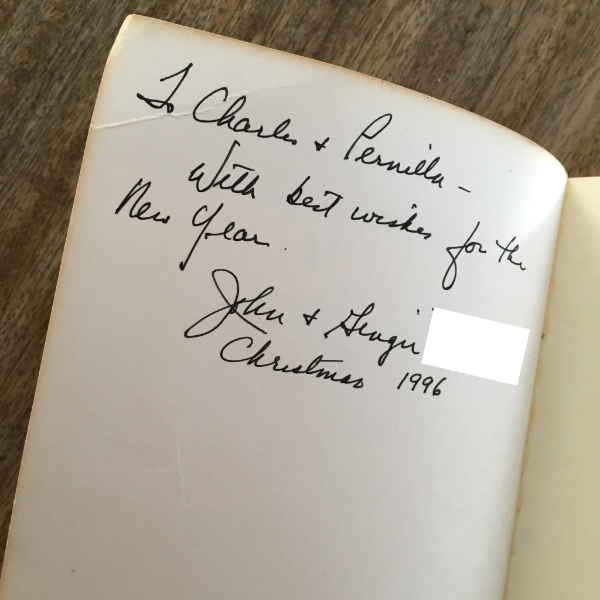 To Charles + Pernilla -
With best wishes for the
New Year.
John + Ginger
Christmas 1996